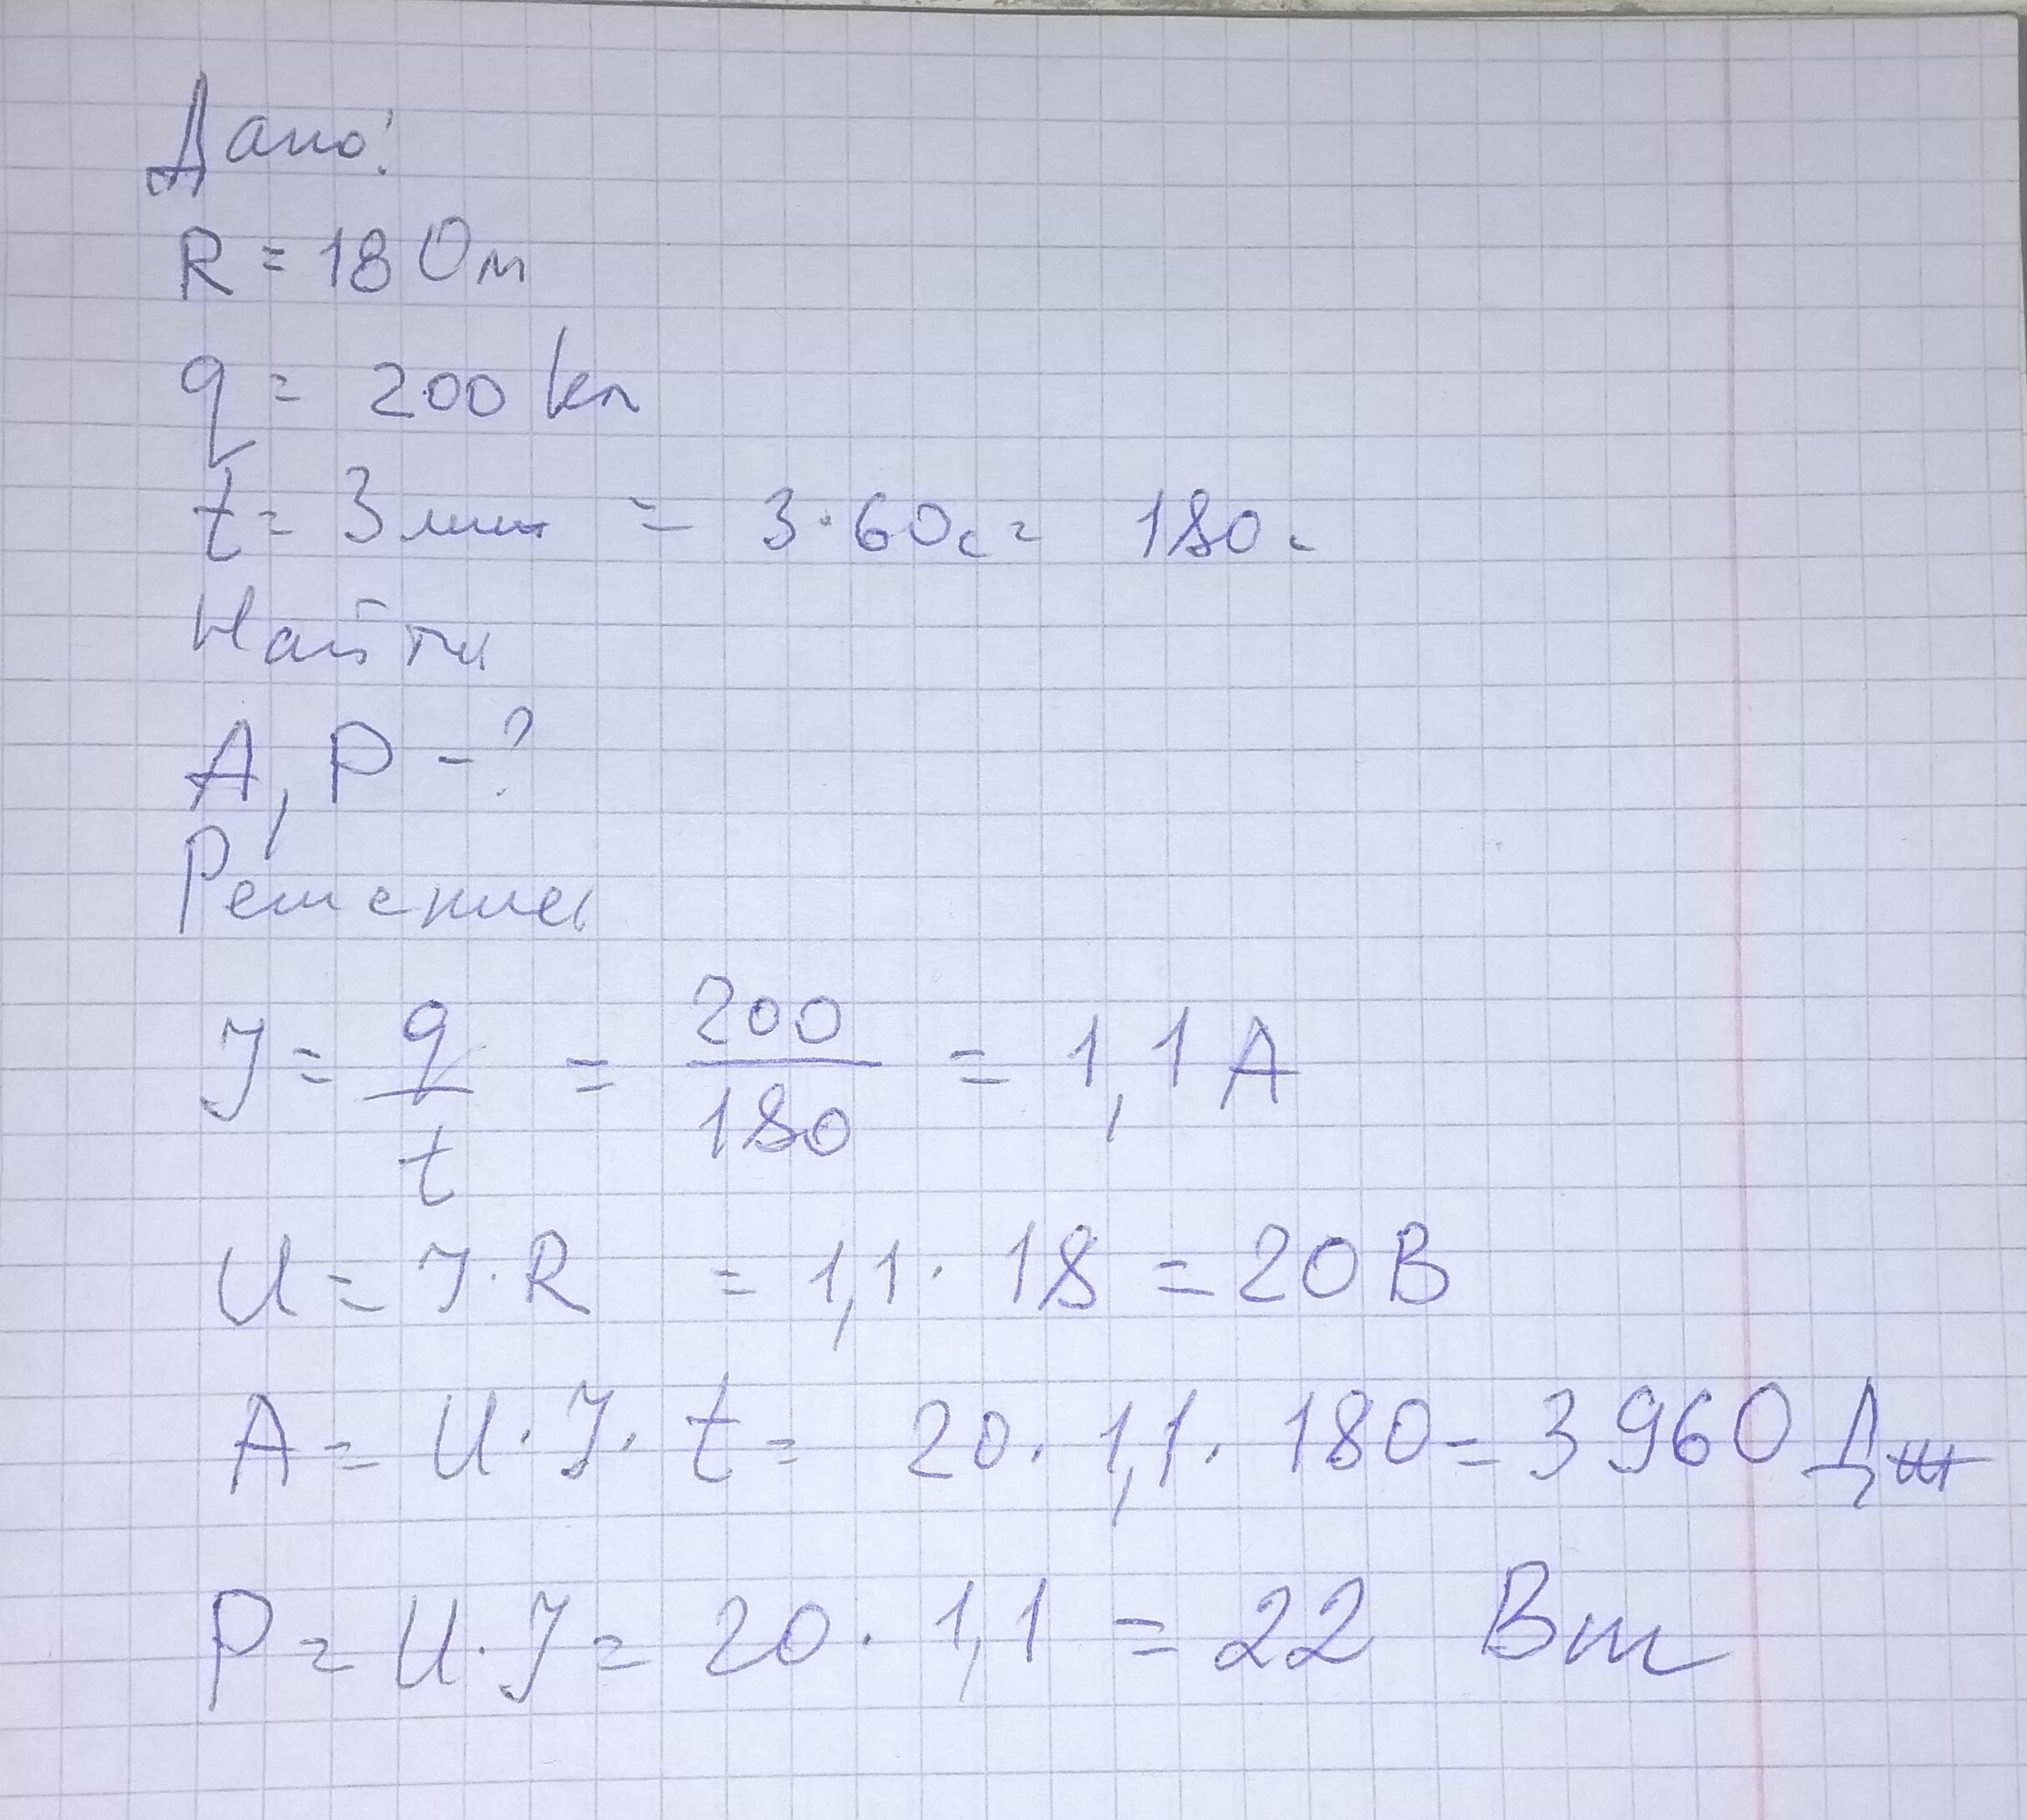 Дано:
R = 18 Ом
q = 200 кл
t = 3 мин = 3·60с = 180с
Найти
A, P - ?
Решение
J = q/t = 200/180 = 1,1 A
U = J·R = 1,1·18 = 20 В
A = U·J·t = 20·1,1·180 = 3960 Дж
P = U·J = 20·1,1 = 22 Вт